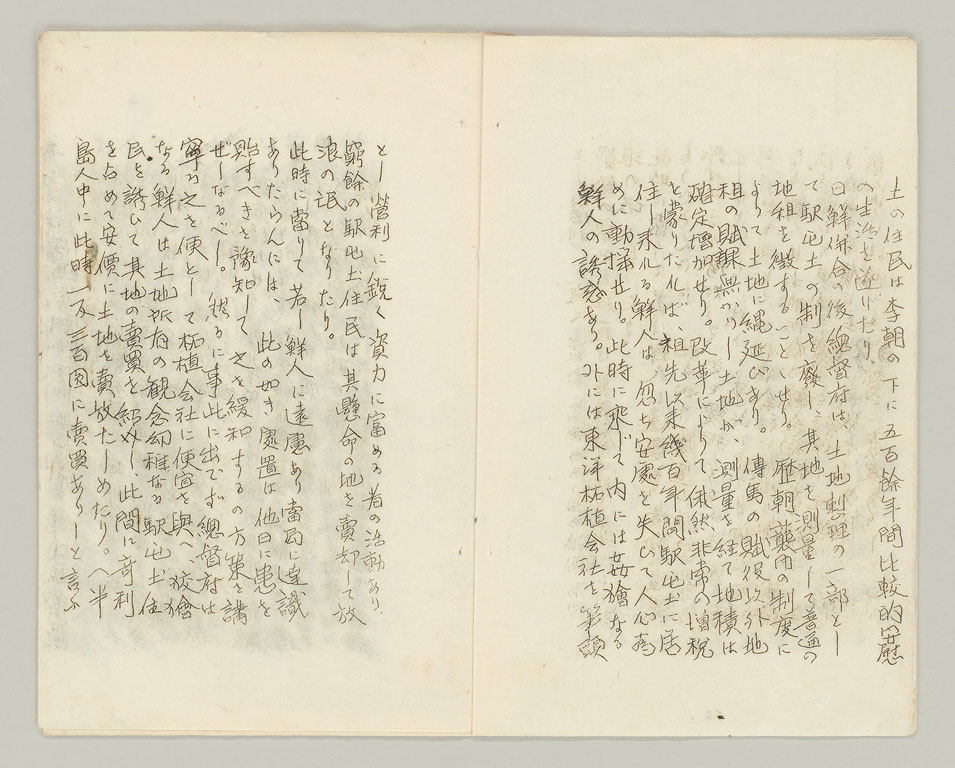 土の住民は李朝の下に五百餘年間比較的安慰
の生活を遂げたり
日鮮併合の後總督府は、土地整理の一部とし
て駅屯土の制を廢し、其地を測量して普通の
地租を徴することゝせり。歴朝襲用の制度に
よりて土地に縄延びあり。傳馬の賦役以外地
租の賦課無かりし土地が、測量を経て地積は
確定増加せり。改革によりて俄然非常の増税
と蒙りたれば、祖先以来幾百年間駅屯土に居
住し来れる鮮人は、忽ち安處を失ひて人心為
めに動揺せり。此時に乗じて内には姦獪なる
鮮人の誘惑あり。外には東洋拓植会社を筆頭
とし営利に鋭く資力に富める者の活動あり、
窮餘の駅屯土住民は其懸命の地を賣却して放
浪の氓となりたり。
此時に當りて若し鮮人に遠慮あり當局に達識
ありたらんには、此の如き處置は他日に患を
貽すべきを豫知して之を緩和するの方策を講
ぜしなるべし。然るに事此に出でず總督府は
寧ろ之を便として拓植会社に便宜を與へ、狡獪
なる鮮人は土地所有の観念幼稚なる駅屯土住
民を誘ひて其地の賣買を紹介し、此間に奇利
を占めて安價に土地を賣放たしめたり。(半
島人中に此時一反三百圓に賣買ありしと言ふ